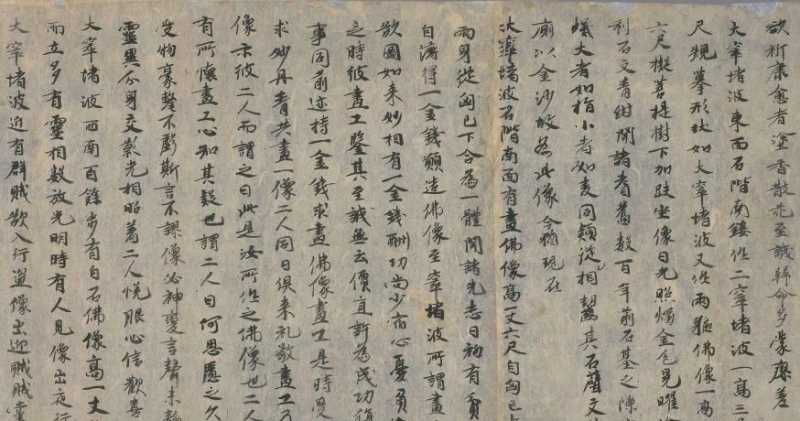 欲祈康愈者塗香散花至誠歸命多蒙瘳差
大窣堵波東面石階南鏤作二窣堵波一高三
尺規摹形狀如大窣堵波又作兩軀佛像一高
六尺擬菩提樹下加趺坐像日光照燭金色晃曜
利石文青紺聞諸耆舊數百年前石基之隙
蟻大者如指小者如麥同類相從齧其石壁文
廁以金沙作為此像今猶現在
大窣堵波石階南面有畫佛像高一丈六尺自匈已上
兩身從匈已下合為一體聞諸先志曰初有貧
自濟得一金錢願造佛像至窣堵波所謂畫
欲圖如來妙相有一金錢酬功尚少宿心憂負
之時彼畫工鑒其至誠無云價直許為成功復
事同前迹持一金錢求畫佛像畫工是時受
求妙丹青共畫一像二人同日俱來礼敬畫工乃
像示彼二人而謂之曰此是汝所作之佛像也二人
有所懷畫工心知其疑也謂二人曰何思慮之久
受物豪氂不虧斯言不謬像必神變言聲未
靈異分身交影光相照著二人悅服心信歡喜
大窣堵波西南百餘步有白石佛像高一丈
而立多有靈相數放光明時有人見像出夜行
大窣堵波近有群賊欲入行盜像出迎賊賊黨